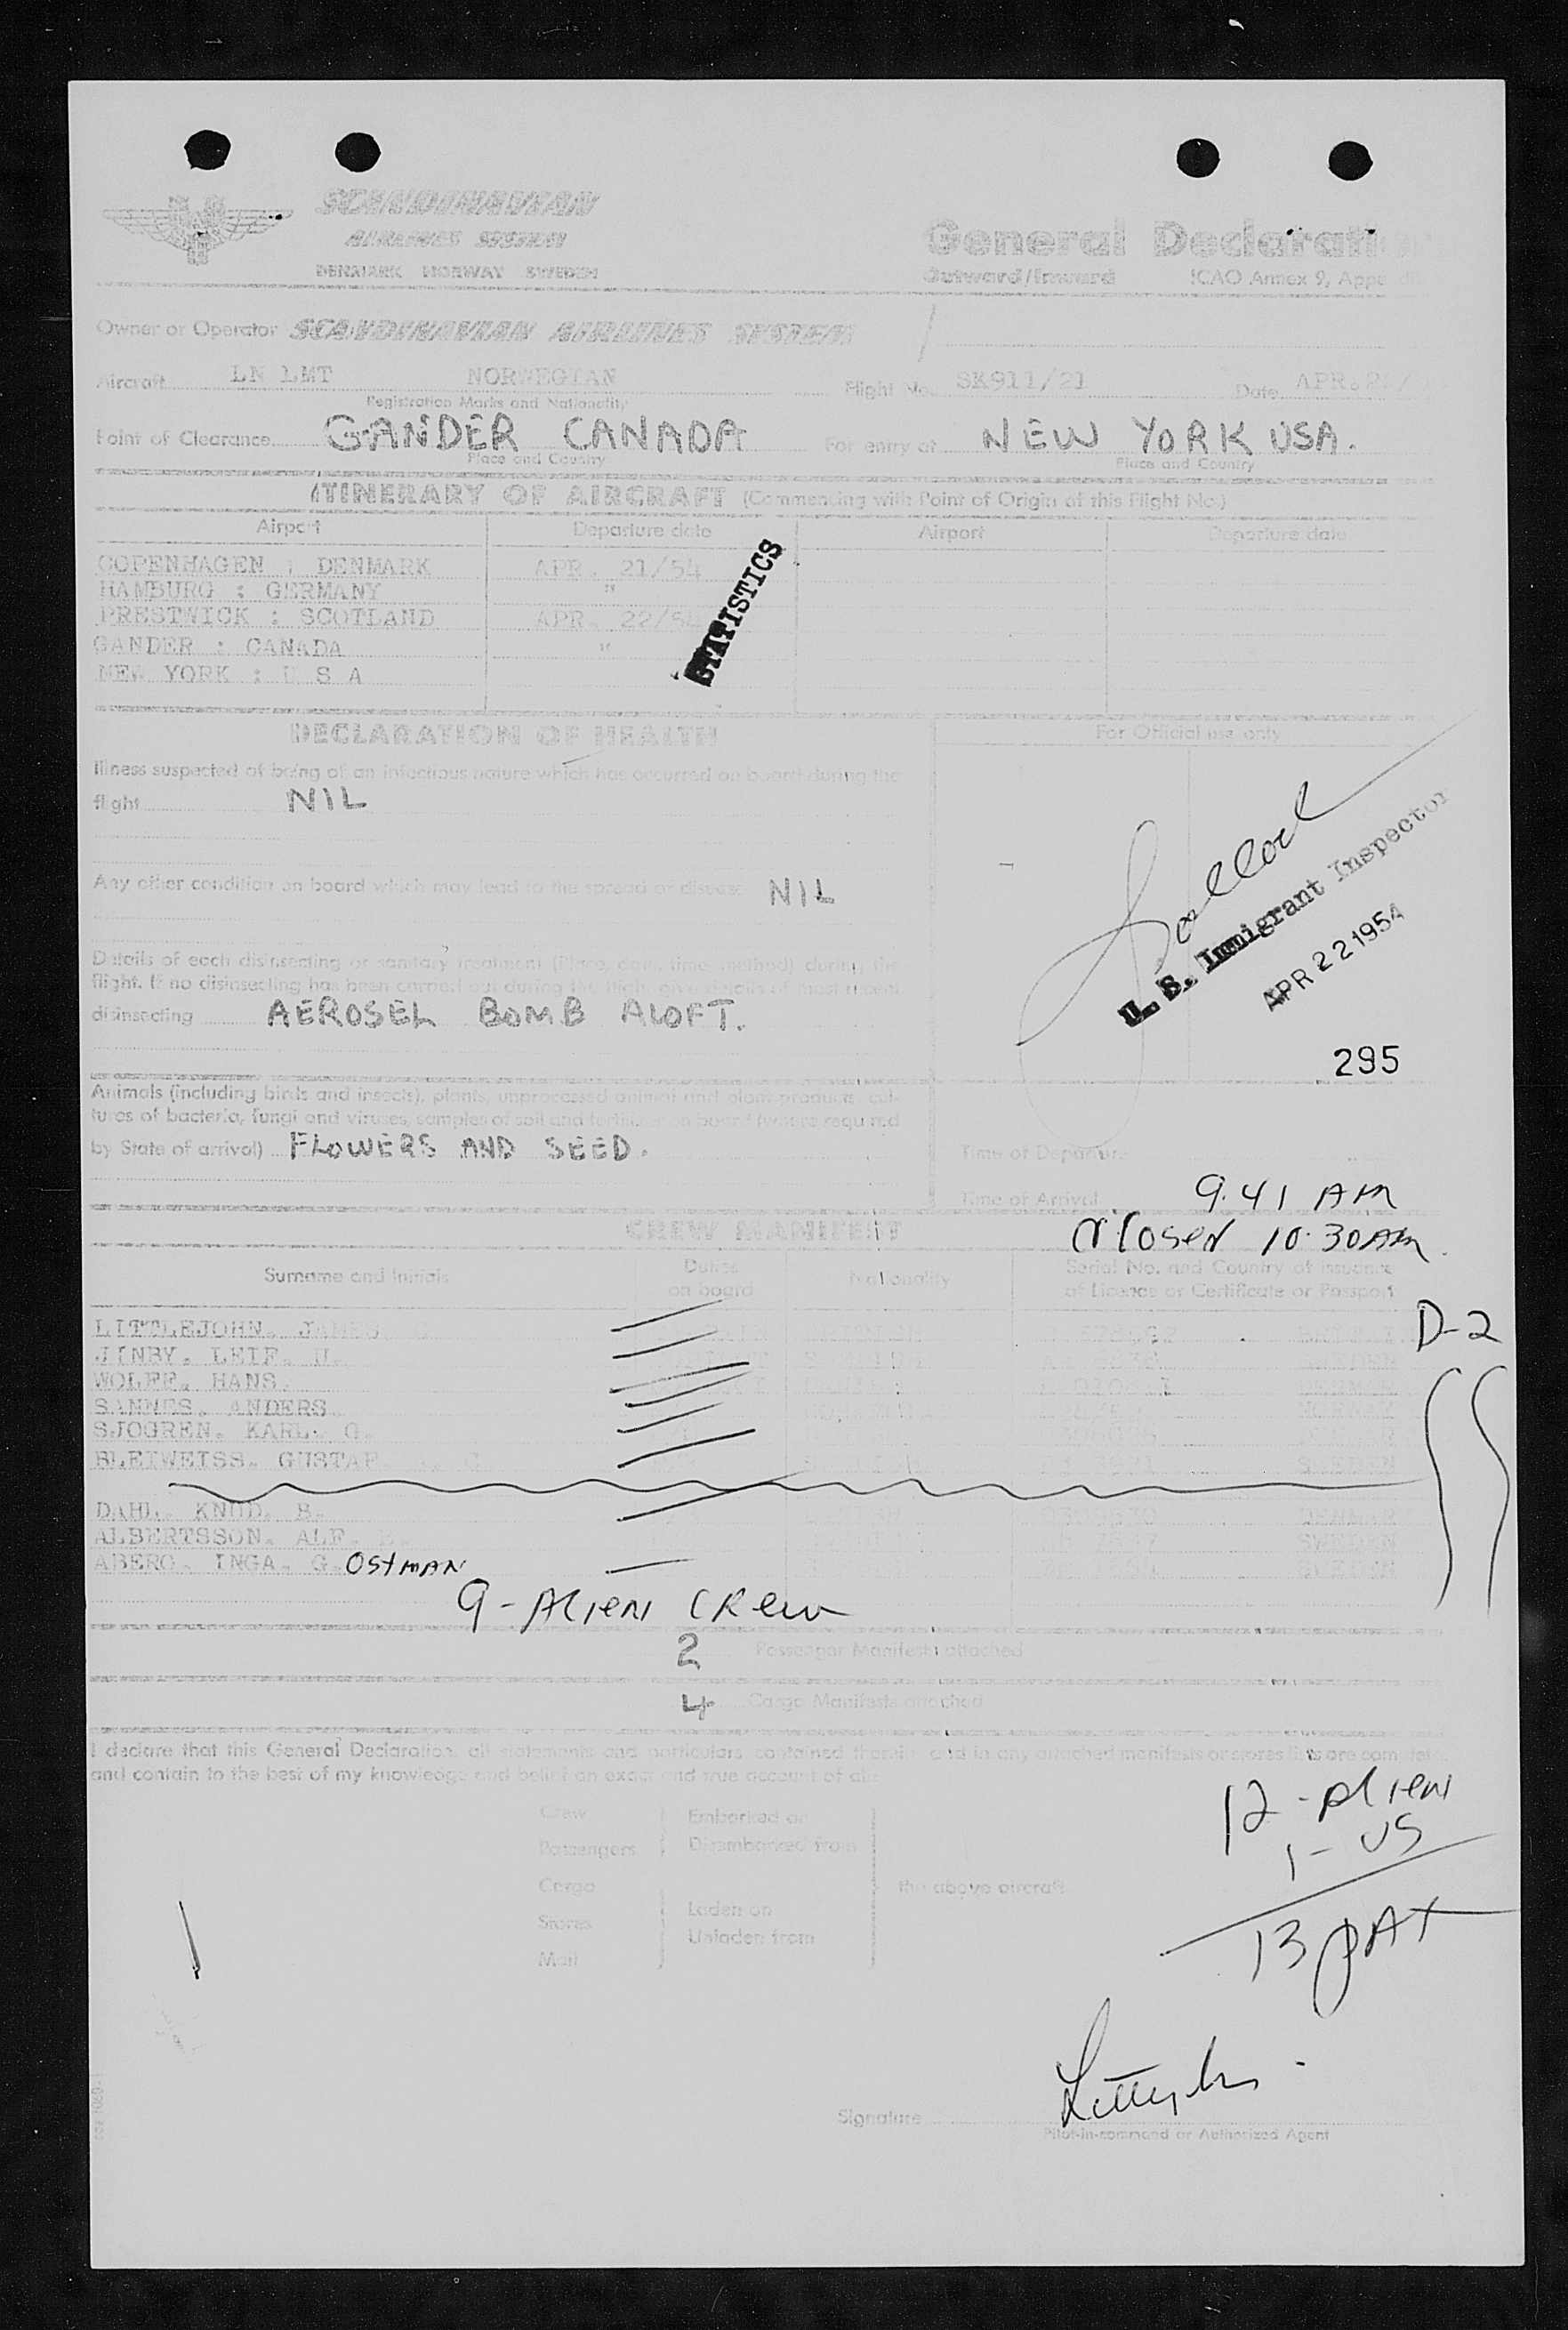 SCANDINAVIAN
AIRLINES SYSTEM
DENMARK NORWAY SWEDEN
General Declarati
Outward/Inward ICAO Annex 9, Appe
Owner or Operator SCANDINAVIAN AIRLINES SYSTEM
Aircraft LN LMT NORWEGIAN Flight No. SK911/21 Date APR.
Registration Marks and Nationality
Point of Clearance GANDER CANADA For entry at NEW YORK USA.
Place and Country Place and Country
ITINERARY OF AIRCRAFT (Commencing with Point of Origin of this Flight No.)
Airport Departure date Airport Departure date
COPENHAGEN : DENMARK APR. 21/54
HAMBURG : GERMANY "
PRESTWICK : SCOTLAND APR. 22/54
GANDER : CANADA "
NEW YORK : U S A
STATISTICS
DECLARATION OF HEALTH
Illness suspected of being of an infectious nature which has occurred on board during the
flight NIL
Any other condition on board which may lead to the spread of disease NIL
Details of each disinsecting or sanitary treatment (place, date, time, method) during the
flight. If no disinsecting has been carried out during the flight give details of most recent
disinsecting AEROSEL BOMB ALOFT.
Animals (including birds and insects), plants, unprocessed animal and plant products, cul-
tures of bacteria, fungi and viruses, samples of soil and fertilizer on board (where required
by State of arrival) FLOWERS AND SEED.
For Official use only
U. S. Immigrant Inspector
APR 22 1954
295
Time of Departure
Time of Arrival 9.41 AM
Closed 10.30 AM.
CREW MANIFEST
Surname and Initials Duties on board Nationality Serial No. and Country of issuance
of Licence or Certificate or Passport
LITTLEJOHN. JAMES D-2
JINBY. LEIF. U.
WOLFF. HANS. DENMAR
SANNES. ANDERS. NORWAY
SJOGREN. KARL. G.
BLEIWEISS. GUSTAF SWEDEN
DAHL. KNUD. B. DENMAR
ALBERTSSON. ALF. SWEDEN
ABERG. INGA. G. OSTMAN SWEDEN
9-Alien Crew
2 Passenger Manifests attached
4 Cargo Manifests attached
I declare that this General Declaration, all statements and particulars contained therein and in any attached manifests or stores lists are complete,
and contain to the best of my knowledge and belief an exact and true account of all
Crew Embarked on
Passengers Disembarked from
Cargo the above aircraft
Stores Laden on
Mail Unladen from
12-Alien
1-US
13 PAX
Signature
Pilot-in-command or Authorized Agent